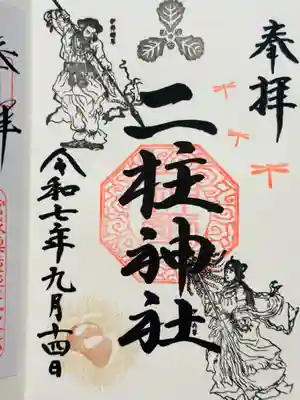 奉拝
二柱神社
令和七年九月十四日
拝